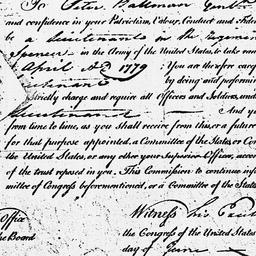 To Peter
and confidence in your Patriotism, Valour, Conduct and Fidel
be a Lieutenant in the Regiment
Spencer in the Army of the United States, to take ran
April AD 1779 You are therefore careful
by doing and performin
Strictly charge and require all Officers and Soldiers, und
Lieutenant And yo
from time to time, as you shall receive from this, or a future
for that purpose appointed, a Committee of the States, or Con
the United States, or any other your Superior Officer, accor
of the trust reposed in you. This Commission to continue in
mittee of Congress beforementioned, or a Committee of the Stat
Office Witness his Excel
he Board the Congress of the United States
day of June